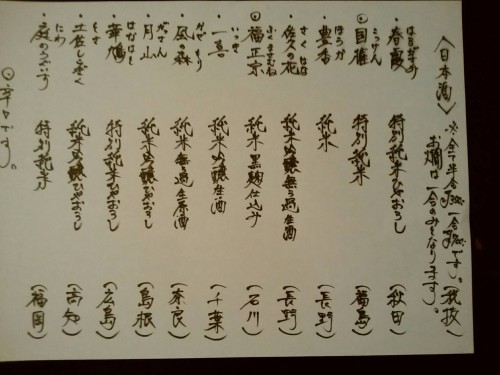 〈日本酒〉 ※全て半合 一合 です。(税抜)
お燗は一合のみとなります。
・春霞 特別純米ひやおろし (秋田)
はるがすみ
◎国権 特別純米 (福島)
こっけん
・豊香 純米 (長野)
ほうか
・佐久の花 純米吟醸無ろ過生酒 (長野)
さく はな
◎福正宗 純米 黒麹仕込み (石川)
ふくまさむね
・一喜 純米吟醸生酒 (千葉)
いっき
・風の森 純米無濾過生原酒 (奈良)
かぜ もり
・月山 純米吟醸ひやおろし (島根)
がっさん
・華鳩 特別純米ひやおろし (広島)
はなはと
・土佐しらぎく 純米吟醸ひやおろし (高知)
とさ
・庭のうぐいす 特別純米 (福岡)
にわ
◎辛口です。